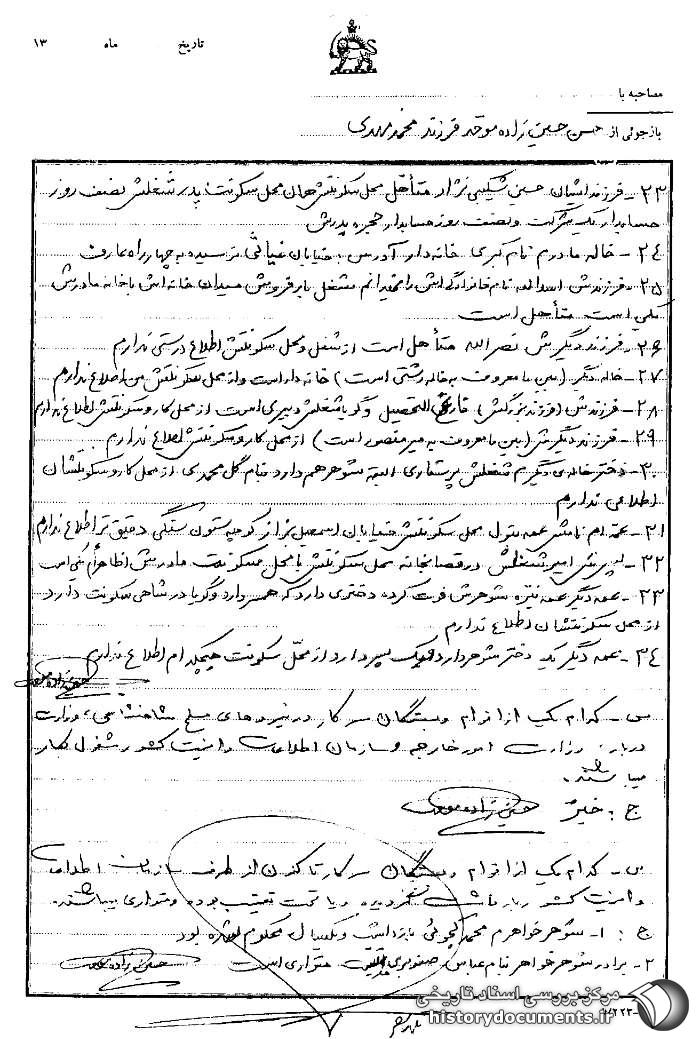 تاریخ ماه ۱۳
مصاحبه با
بازجوئی از حسن حسین زاده موحد فرزند محمد مهدی
۲۳- فرزند ایشان حسین شکیبی نژاد متأهل محل سکونتش همان محل سکونت پدر شغلش نصف روز
حسابدار یک شرکت و نصف روز حسابدار حجره پدرش
۲۴- خاله مادرم نام کبری خانه دار آدرس: خیابان غیاثی نرسیده به چهارراه عارف
۲۵- فرزندش اسدالله نام خانوادگیش را نمیدانم شغل باربفروش میدان خانه اش با خانه مادرش
یکی است متأهل است
۲۶- فرزند دیگرش نصرالله متأهل است از شغل و محل سکونتش اطلاع درستی ندارم
۲۷- خاله دیگر (بین ما معروف به خاله رشتی است) خانه دار است و از محل سکونتش من اطلاع ندارم
۲۸- فرزندش (فرزند بزرگش) فارغ التحصیل و گویا شغلش دبیری است از محل کار و سکونتش اطلاع ندارم
۲۹- فرزند دیگرش (بین ما معروف به میر منصور است) از محل کار و سکونتش اطلاع ندارم
۳۰- دختر خاله ی دیگرم شغلش پرستاری البته شوهر هم دارد بنام گل محمدی از محل کار و سکونتشان
اطلاعی ندارم
۳۱- عمه ام نامش عمه بتول محل سکونتش خیابان اسمعیل بزاز کوچه ستون سنگی دقیق تر اطلاع ندارم
۳۲- پسرش امیر شغلش در قصابخانه محل سکونتش با محل سکونت مادرش ظاهراً یکی است
۳۳- عمه دیگر عمه نیره شوهرش فوت کرده دختری دارد که همسر دارد و گویا در شاهی سکونت دارد
از محل سکونتشان اطلاع ندارم
۳۴- عمه دیگر یک دختر شوهردار دارد و یک پسر دارد از محل سکونت هیچکدام اطلاع ندارم
حسین زاده موحد
س- کدام یک از اقوام و بستگان سرکار در نیروهای مسلح شاهنشاهی، وزارت
دربار، وزارت امور خارجه و سازمان اطلاعات و امنیت کشور مشغول بکار
میباشند.
ج: خیر حسین زاده موحد
س- کدام یک از اقوام و بستگان سرکار تاکنون از طرف سازمان اطلاعات
و امنیت کشور بازداشت گردیده و یا تحت تعقیب بوده و متواری میباشند.
ج: ۱- شوهر خواهرم محمد کچوئی بازداشت و یکسال محکوم شده بود
۲- برادر شوهر خواهر بنام عباس متواری است حسین زاده موحد
مرکز بررسی اسناد تاریخی
historydocuments.ir